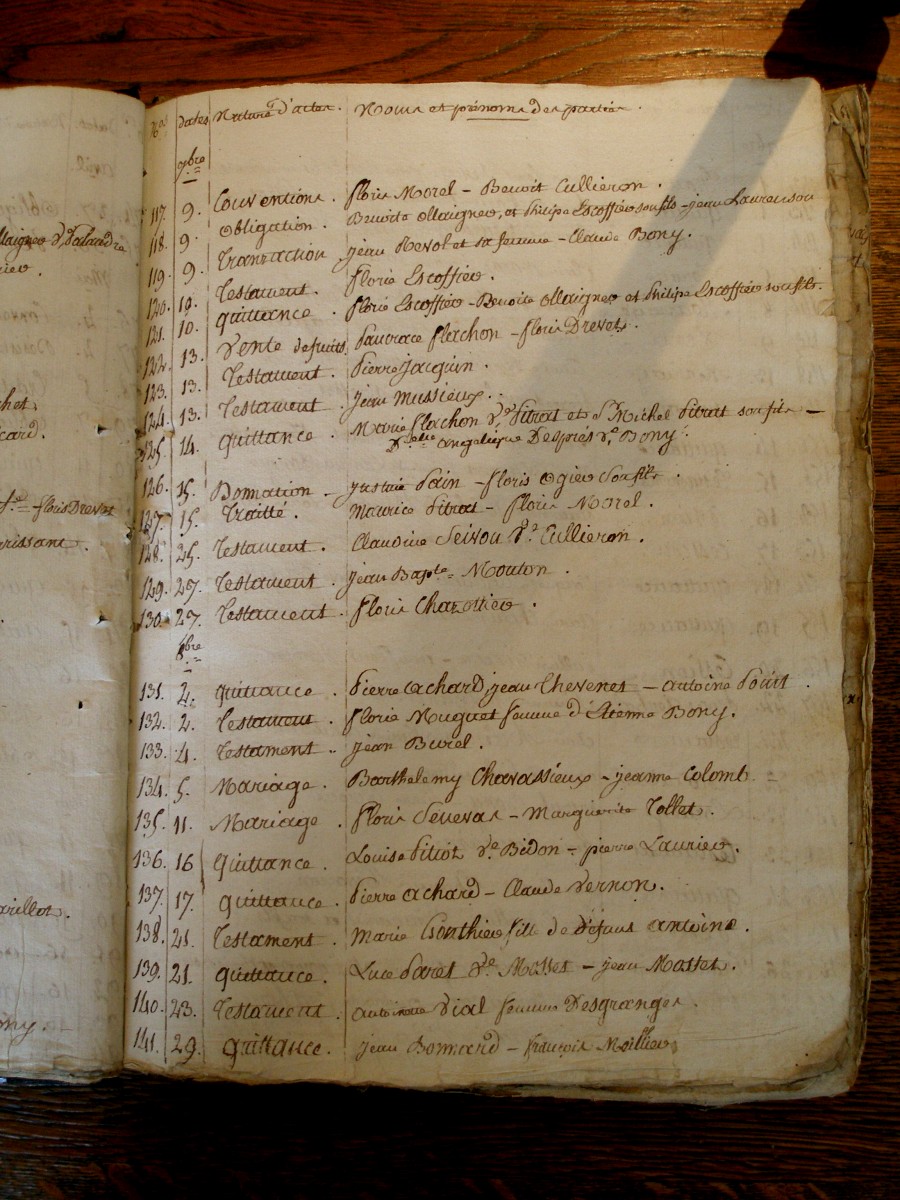 Nos dates Nature d'actes. Noms et prénoms des parties.
9bre
117. 9. Conventions. floris Morel - Benoit Cullieron.
118. 9. obligation. Benoite Maignes, et philipe Escoffier son fils - jean Laurenson
119. 9. Transaction jean Revol et sa femme - Claude Bony.
120. 10. Testament. floris Escoffier.
121. 10. quittance. floris Escoffier - Benoite Maignes et philipe Escoffier son fils.
122. 13. Vente de fruits flachon - floris Drevet.
123. 13. Testament. pierre jacquin.
124. 13. Testament jean Mussieux.
125. 14. quittance. Marie flachon ve pitrat et sr Michel pitrat son fils -
Delle angelique Desprès ve Bony.
126. 15. Donnation - pain - floris ogier son fils.
127. 15. Traitté. Maurice pitrat - floris Morel.
128. 25. Testament. Claudine Seivou ve Cullieron.
129. 27. Testament. jean Bapte Mouton.
130. 27. Testament. floris Charottier.
xbre
131. 2. quittance. pierre achard, jean Thevenet - antoine
132. 2. Testament. floris Muguet femme d'Etienne Bony.
133. 4. Testament. jean Burel.
134. 5. Mariage. Barthelemy Chavassieux - jeanne Colomb.
135. 11. Mariage. floris Senevas - Marguerite Tollet.
136. 16 quittance. Louise pitiot ve Bidon - pierre Laurier.
137. 17. quittance. pierre achard - Claude Vernon.
138. 21. Testament. Marie Gonthier fille de défunt antoine.
139. 21. quittance. Luce paret ve Masset - jean Masset.
140. 23. Testament. antoinette Vial femme Desgranges.
141. 29. quittance. jean Bonnard - françois Moillier